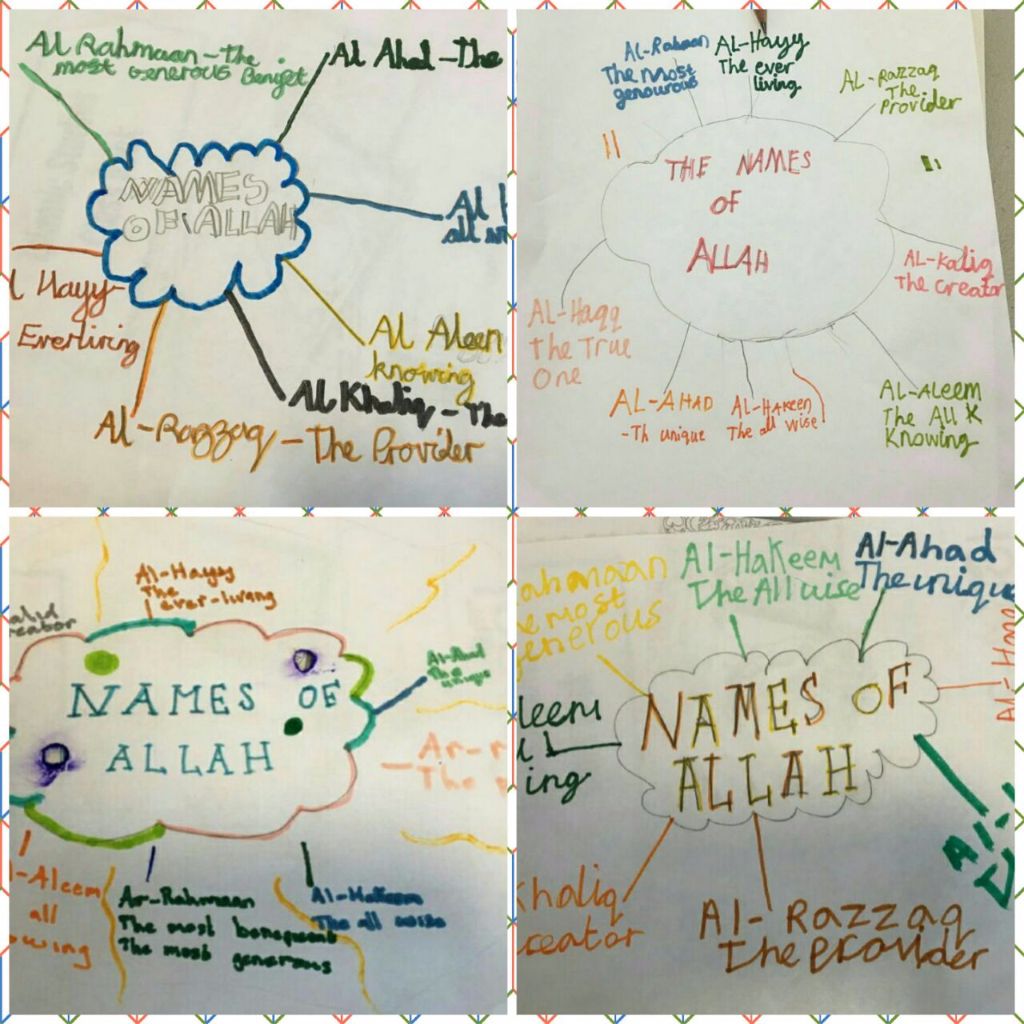 Al Rahmaan - The
most generous
Al Ahad - The
NAMES
OF ALLAH
Al
all
Hayy
Everliving
Al Aleem
knowing
Al Khaliq - The
Al-Razzaq - The Provider
AL-Hayy
The ever
living
The most
genourous
AL-RAZZAQ
The
Provider
THE NAMES
OF
ALLAH
AL-Kaliq
The creator
AL-Haqq
The True
One
AL-AHAD
-Th unique
AL-HAKEEM
The all wise
AL-ALEEM
The All K
Knowing
Al-Hayy
The
ever-living
Al-Ahad
The
unique
NAMES OF
ALLAH
The
-Aleem
all
owing
Ar-Rahmaan
The most
The most generous
Al-Hakeem
The all wise
ahmaan
e most
enerous
Al-Hakeem
The All wise
Al-Ahad
The unique
leem
ing
NAMES OF
ALLAH
Khaliq
creator
Al-Razzaq
The Provider
Al-